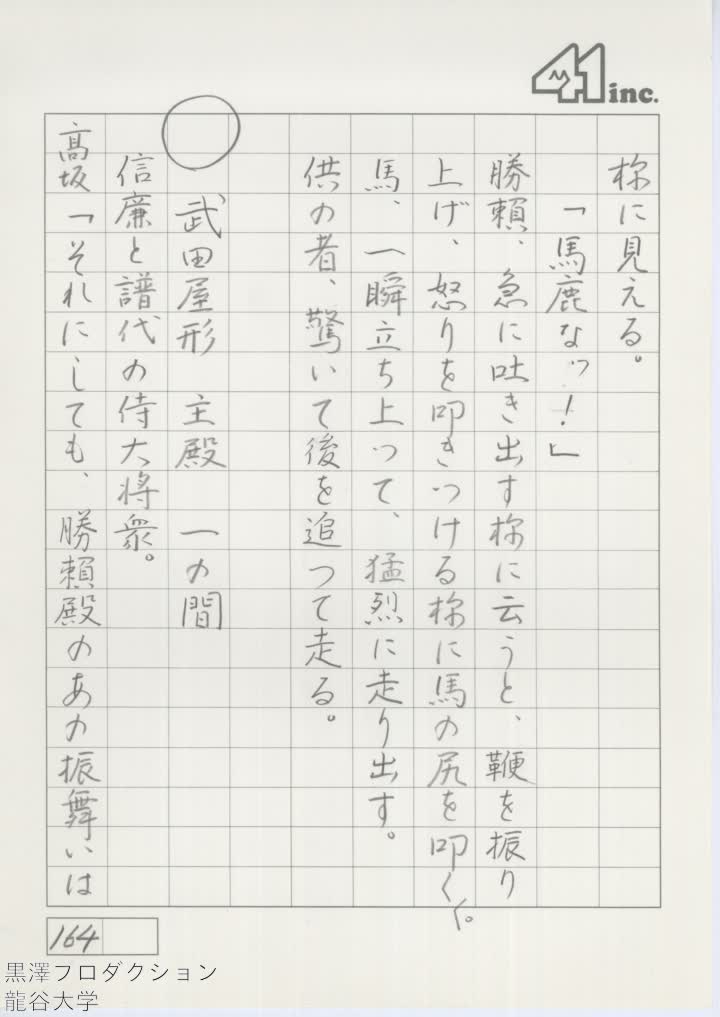 41 inc.
様に見える。
「馬鹿なッ！」
勝頼、急に吐き出す様に云うと、鞭を振り
上げ、怒りを叩きつける様に馬の尻を叩く。
馬、一瞬立ち上って、猛烈に走り出す。
供の者、驚いて後を追って走る。
○　武田屋形　主殿　一の間
信廉と譜代の侍大将衆。
高坂「それにしても、勝頼殿のあの振舞いは
164
黒澤プロダクション
龍谷大学